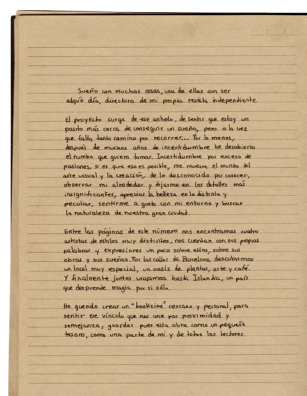 Sueño con muchas cosas, una de ellas con ser
algún día, directora de mi propia revista independiente.
El proyecto surge de ese anhelo, de sentir que estoy un
pasito más cerca de conseguir un sueño, pero a la vez
que falta tanto camino por recorrer... Por lo menos,
después de muchos años de incertidumbre he descubierto
el rumbo que quiero tomar. Incertidumbre por exceso de
pasiones, si es que eso es posible, me mueve el mundo del
arte visual y la creación, de lo desconocido por conocer,
observar mi alrededor y fijarme en los detalles más
insignificantes, apreciar la belleza en lo distinto y
peculiar, sentirme a gusto con mi entorno y buscar
la naturaleza de nuestra gran ciudad.
Entre las páginas de este número nos encontramos cuatro
artistas de estilos muy distintos, nos cuentan con sus propias
palabras y expresiones un poco sobre ellos, sobre sus
obras y sus sueños. Por las calles de Barcelona descubrimos
un local muy especial, un oasis de plantas, arte y café.
Y finalmente juntos viajamos hasta Islandia, un país
que desprende magia por si sólo.
He querido crear un "bookzine" cercano y personal, para
sentir ese vínculo que nos une por proximidad y
semejanza, guardar pues esta obra como un pequeño
tesoro, como una parte de mi y de todos los lectores.